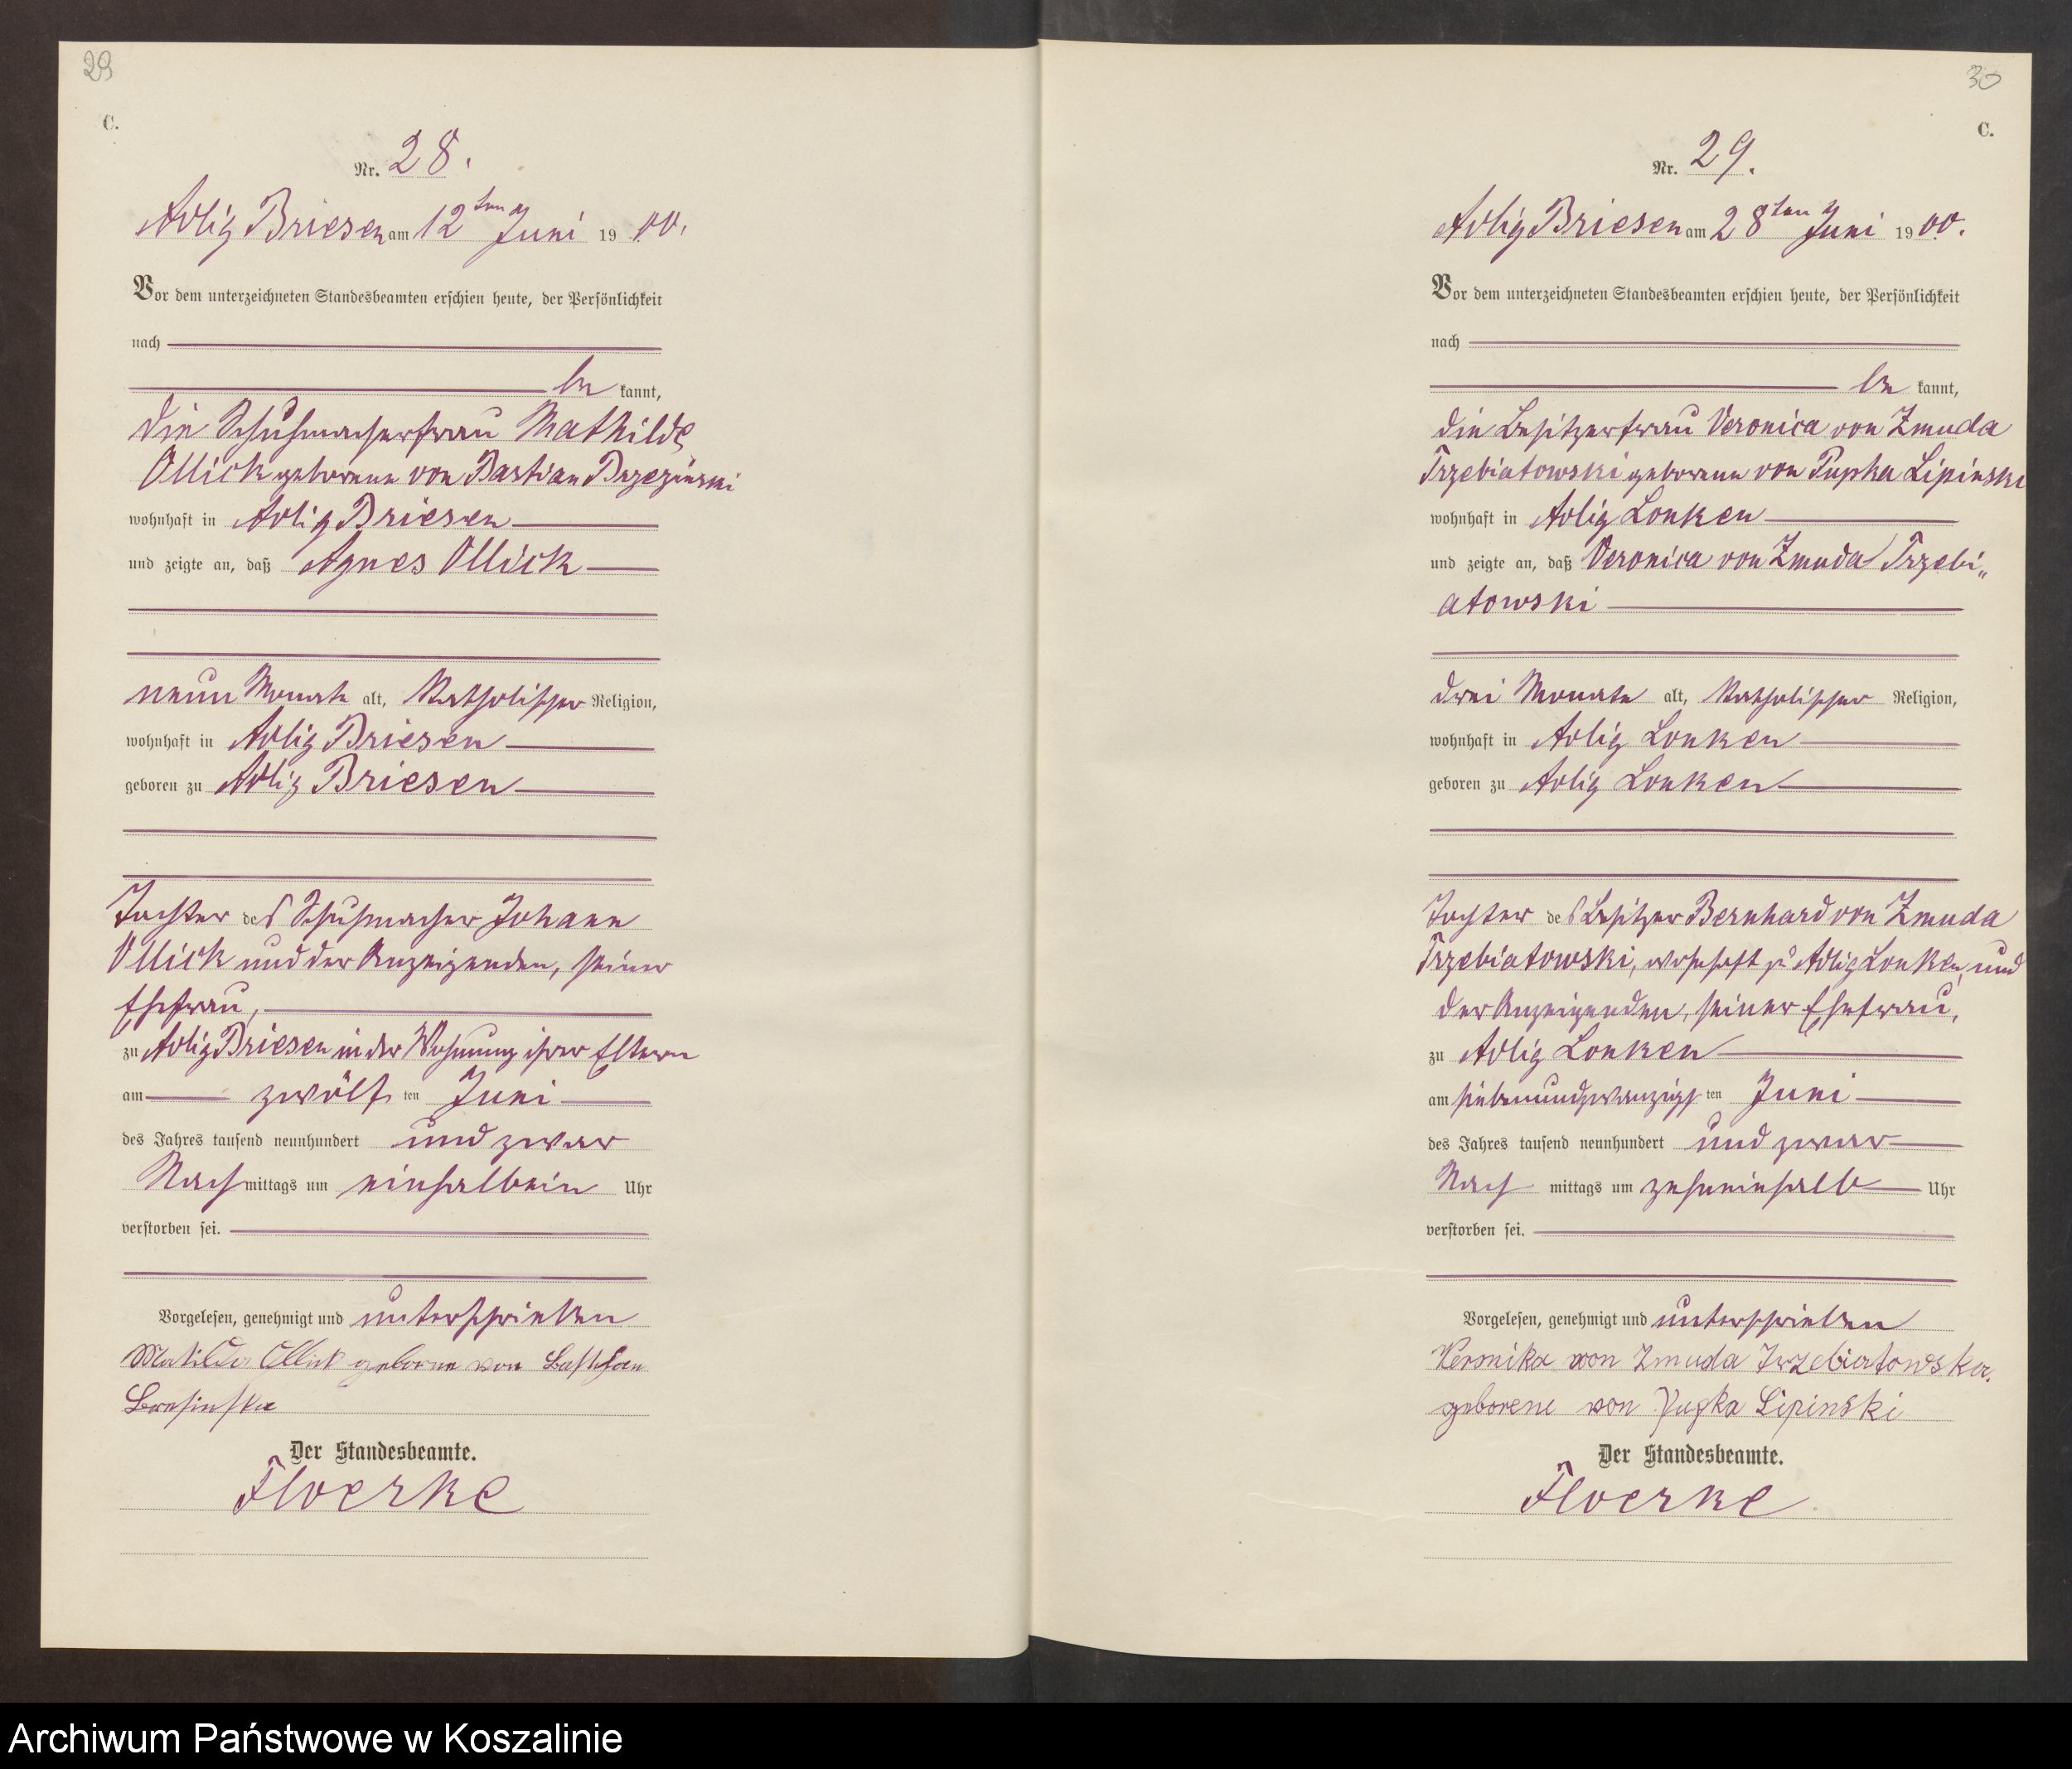 29
C.
Nr. 28.
Adlig Briesen am 12ten Juni 1900.
Vor dem unterzeichneten Standesbeamten erschien heute, der Persönlichkeit
nach
be kannt,
die Schuhmacherfrau Mathilde
Ollick geborene von Bastian Brzezinski
wohnhaft in Adlig Briesen
und zeigte an, daß Agnes Ollick
neun Monate alt, katholischer Religion,
wohnhaft in Adlig Briesen
geboren zu Adlig Briesen
Tochter des Schuhmacher Johann
Ollick und der Anzeigenden, seiner
Ehefrau,
zu Adlig Briesen in der Wohnung ihrer Eltern
am zwölf ten Juni
des Jahres tausend neunhundert und zwar
Nach mittags um einhalbein Uhr
verstorben sei.
Vorgelesen, genehmigt und unterschrieben
Matilda Ollick geborne von
Der Standesbeamte.
Floerke
30
C.
Nr. 29.
Adlig Briesen am 28ten Juni 1900.
Vor dem unterzeichneten Standesbeamten erschien heute, der Persönlichkeit
nach
be kannt,
die Besitzerfrau Veronica von Zmuda
Trzebiatowski geborene von Pupka Lipinski
wohnhaft in Adlig Lonken
und zeigte an, daß Veronica von Zmuda Trzebi„
atowski
drei Monate alt, katholischer Religion,
wohnhaft in Adlig Lonken
geboren zu Adlig Lonken
Tochter des Besitzer Bernhard von Zmuda
Trzebiatowski, wohnhaft zu Adlig Lonken, und
der Anzeigenden, seiner Ehefrau,
zu Adlig Lonken
am siebenundzwanzigs ten Juni
des Jahres tausend neunhundert und zwar
Nach mittags um zehneinhalb Uhr
verstorben sei.
Vorgelesen, genehmigt und unterschrieben
Veronika von Zmuda Trzebiatowska.
geborene von Pupka Lipinski
Der Standesbeamte.
Floerke
Archiwum Państwowe w Koszalinie